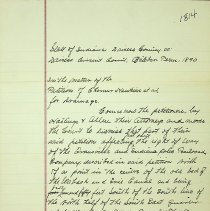 1814
State of Indiana Daviess County ss
Daviess Circuit Court, October Term 1890
In the matter of the
Petition of Thomas et al
for drainage.
Comes now the petitioners by
their attorneys and moves
the Court to dismiss that part of their
said petition affecting the right of way
of the Evansville and Indianapolis Railroad
Company described in said petition
of a point in the center of the old bed of
the Wabash and Erie Canal and being
feet South of the North line of
the North half of the South East quarter